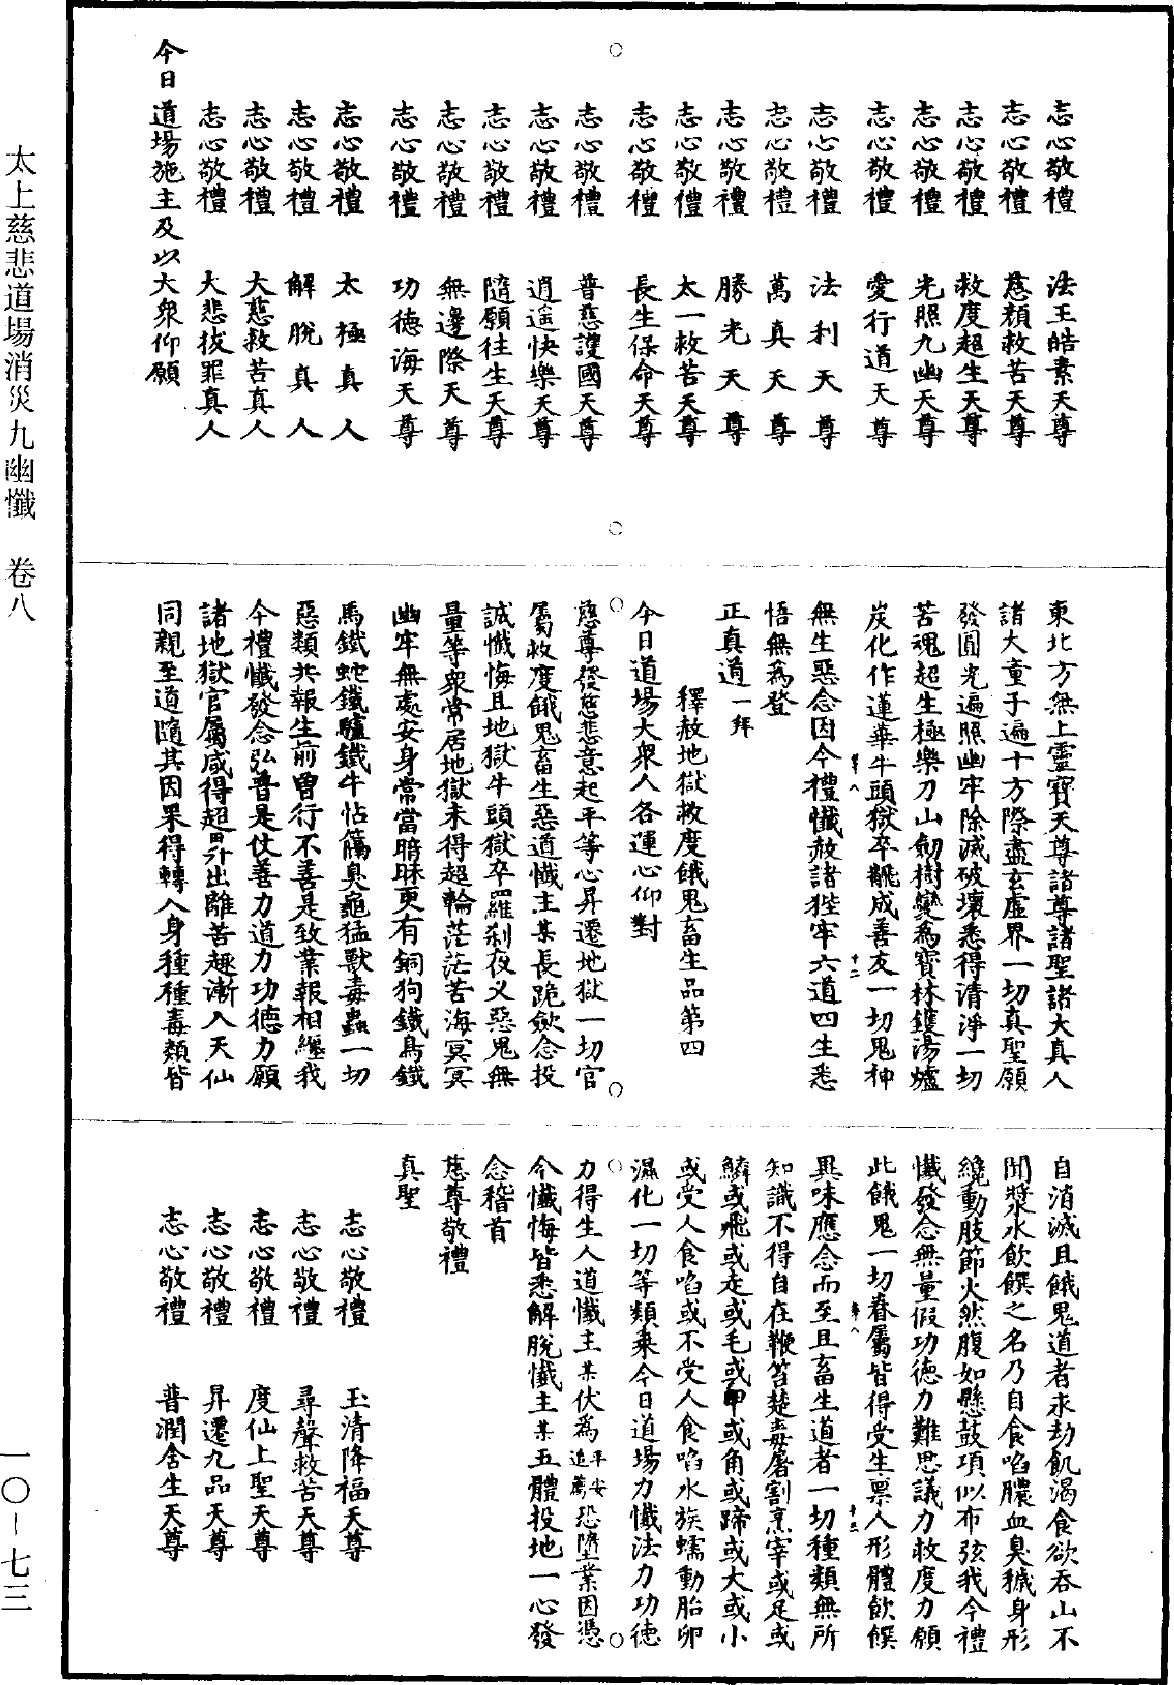 太上慈悲道場消災九幽懺　卷八
一〇－七三
志心敬禮　法王皓素天尊
志心敬禮　慈顏救苦天尊
志心敬禮　救度超生天尊
志心敬禮　光照九幽天尊
志心敬禮　愛行道天尊
志心敬禮　法利天尊
志心敬禮　萬真天尊
志心敬禮　勝光天尊
志心敬禮　太一救苦天尊
志心敬禮　長生保命天尊
志心敬禮　普慈護國天尊
志心敬禮　逍遙快樂天尊
志心敬禮　隨願往生天尊
志心敬禮　無邊際天尊
志心敬禮　功德海天尊
志心敬禮　太極真人
志心敬禮　解脫真人
志心敬禮　大慈救苦真人
志心敬禮　大悲拔罪真人
今日道場施主及以大衆仰願
東北方無上靈寶天尊諸尊諸聖諸大真人
諸大童子遍十方際盡玄虛界一切真聖願
發圓光遍照幽牢除滅破壞悉得清淨一切
苦魂超生極樂刀山劒樹變為寶林鑊湯爐
炭化作蓮華牛頭獄卒翻成善友一切鬼神
無生惡念因今禮懺赦諸狴牢六道四生悉
悟無為登
正真道一拜
釋赦地獄救度餓鬼畜生品第四
今日道場大衆人各運心仰對
慈尊發慈悲意起平等心昇遷地獄一切官
屬救度餓鬼畜生惡道懺主某長跪斂念投
誠懺悔且地獄牛頭獄卒羅刹夜叉惡鬼無
量等衆常居地獄未得超輪茫茫苦海冥冥
幽牢無處安身常當暗昧更有銅狗鐵鳥鐵
馬鐵蛇鐵驢鐵牛帖䕅臭𪓟猛獸毒蟲一切
惡類共報生前曾行不善是致業報相纏我
今禮懺發念弘普是仗善力道力功德力願
諸地獄官屬咸得超昇出離苦趣漸入天仙
同親至道隨其因果得轉人身種種毒類皆
自消滅且餓鬼道者永劫飢渴食欲吞山不
聞漿水飲饌之名乃自食啗膿血臭穢身形
纔動肢節火然腹如懸鼓項似布弦我今禮
懺發念無量假功德力難思議力救度力願
此餓鬼一切眷屬皆得受生禀人形體飲饌
異味應念而至且畜生道者一切種類無所
知識不得自在鞭笞楚毒屠割烹宰或足或
鱗或飛或走或毛或甲或角或蹄或大或小
或受人食啗或不受人食啗水族蠕動胎卵
濕化一切等類乘今日道場力懺法力功德
力得生人道懺主某伏為平安追薦恐墮業因憑
今懺悔皆悉解脫懺主某五體投地一心發
念稽首
慈尊敬禮
真聖
志心敬禮　玉清降福天尊
志心敬禮　尋聲救苦天尊
志心敬禮　度仙上聖天尊
志心敬禮　昇遷九品天尊
志心敬禮　普潤含生天尊